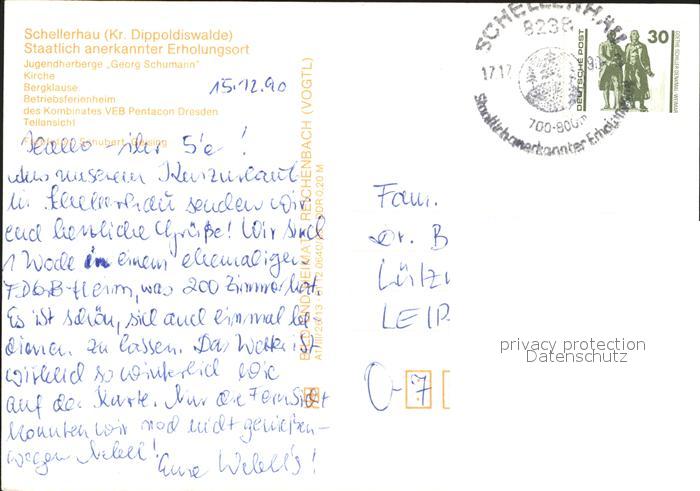 Schellerhau (Kr. Dippoldiswalde)
Staatlich anerkannter Erholungsort
Jugendherberge „Georg Schumann"
Kirche
Bergklause
Betriebsferienheim
des Kombinates VEB Pentacon Dresden
Teilansicht
Schubert
15.12.90
Hallo - ihr 5'e!
Aus unserem Kurzurlaub
in Schellerhau senden wir
euch herzliche Grüße! Wir sind
1 Woche in einem ehemaligen
FDGB-Heim, was 200 Zimmer hat.
Es ist schön, sich auch einmal be-
dienen zu lassen. Das Wetter ist
wirklich so winterlich wie
auf der Karte. Nur die Fernsicht
konnten wir noch nicht genießen -
wegen Nebel!
Eure
BILD UND HEIMAT REICHENBACH (VOGTL)
SCHELLERHAU
8238
17.12
90
700-800m
Staatlich anerkannter Erholungsort
DEUTSCHE POST
30
GOETHE-SCHILLER-DENKMAL WEIMAR
Fam.
Dr. B
Lützn
LEIP
O-7
privacy protection
Datenschutz